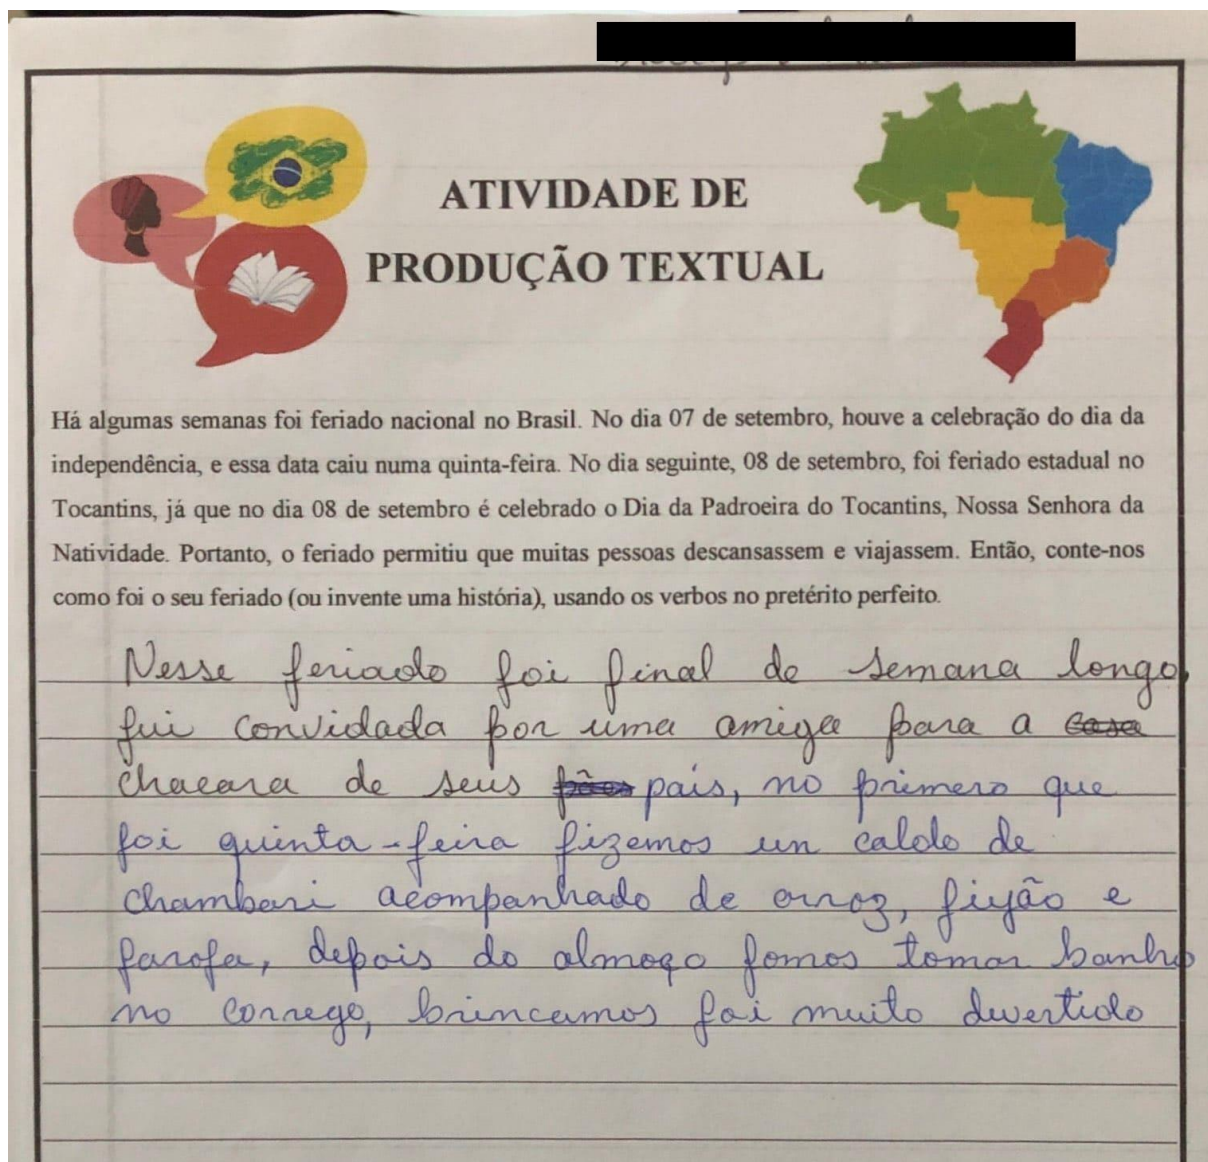 ATIVIDADE DE
PRODUÇÃO TEXTUAL
Há algumas semanas foi feriado nacional no Brasil. No dia 07 de setembro, houve a celebração do dia da
independência, e essa data caiu numa quinta-feira. No dia seguinte, 08 de setembro, foi feriado estadual no
Tocantins, já que no dia 08 de setembro é celebrado o Dia da Padroeira do Tocantins, Nossa Senhora da
Natividade. Portanto, o feriado permitiu que muitas pessoas descansassem e viajassem. Então, conte-nos
como foi o seu feriado (ou invente uma história), usando os verbos no pretérito perfeito.
Nesse feriado foi final de semana longo,
fui convidada por uma amiga para a casa
chacara de seus pais, no primero que
foi quinta-feira fizemos un caldo de
chambari acompanhado de arroz, fiyão e
farofa, depois do almoço fomos tomar banho
no corrego, brincamos foi muito divertido